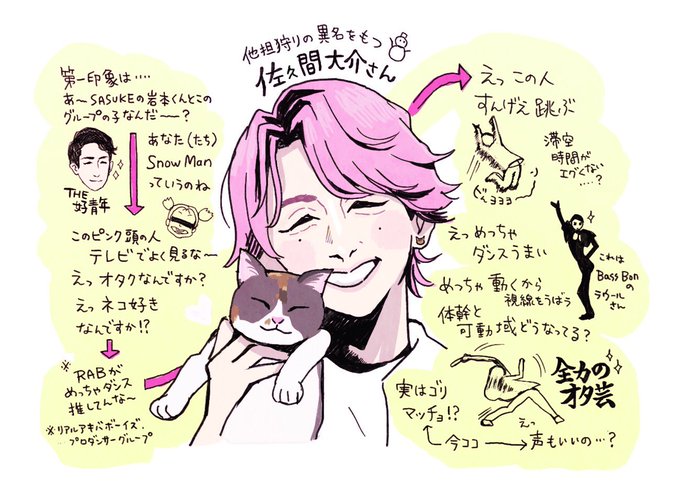 他担狩りの異名をもつ
佐久間大介さん
第一印象は‥‥
あ～SASUKEの岩本くんとこの
グループの子なんだ~~?
あなた(たち)
Snow Man
っていうのね
THE
好青年
このピンク頭の人
テレビでよく見るな～
えっオタクなんですか?
えっネコ好き
なんですか!?
※RABが
めっちゃダンス
推してんな～
※リアルアキバボーイズ.
プロダンサーグループ
えっ この人
すんげえ 跳ぶ
滞空
時間が
エグくない
‥‥?
びょヨヨヨ
えっ めっちゃ
ダンスうまい
これは
Bass Bon
のラウールさん
めっちゃ 動くから
視線をうばう
体幹と
可動域どうなってる?
全力の
オタ芸
実はゴリ
マッチョ!?
今ココ
えっ
声もいいの…?